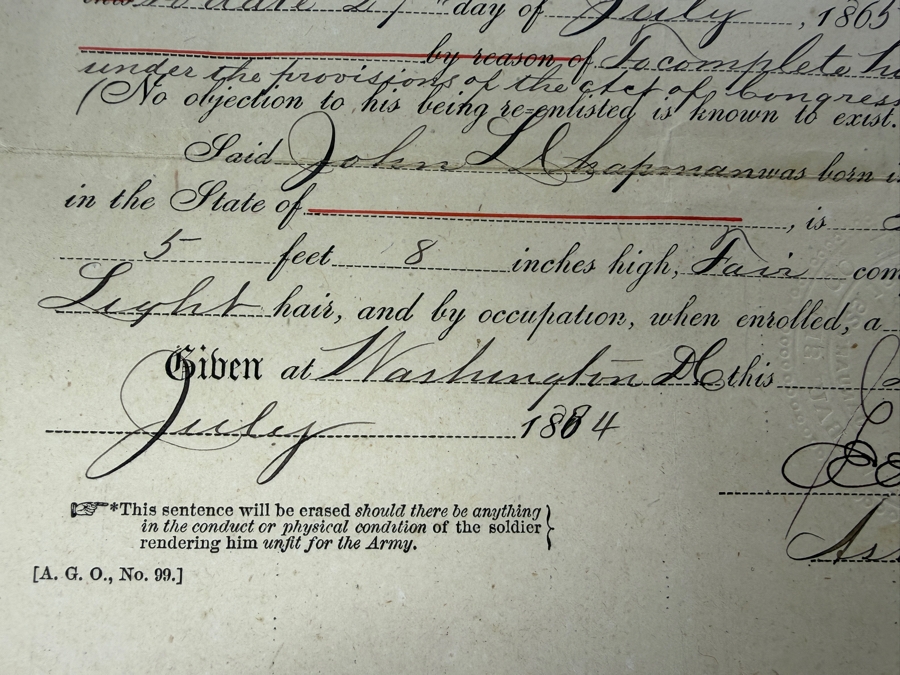 to date 27th day of July, 1865
by reason of To complete
under the provisions of the act of Congress
(No objection to his being re-enlisted is known to exist.
Said John L Chapman was born
in the State of , is
5 feet 8 inches high, Fair com
Light hair, and by occupation, when enrolled, a
Given at Washington DC this
July 1884
*This sentence will be erased should there be anything
in the conduct or physical condition of the soldier
rendering him unfit for the Army.
[A. G. O., No. 99.]